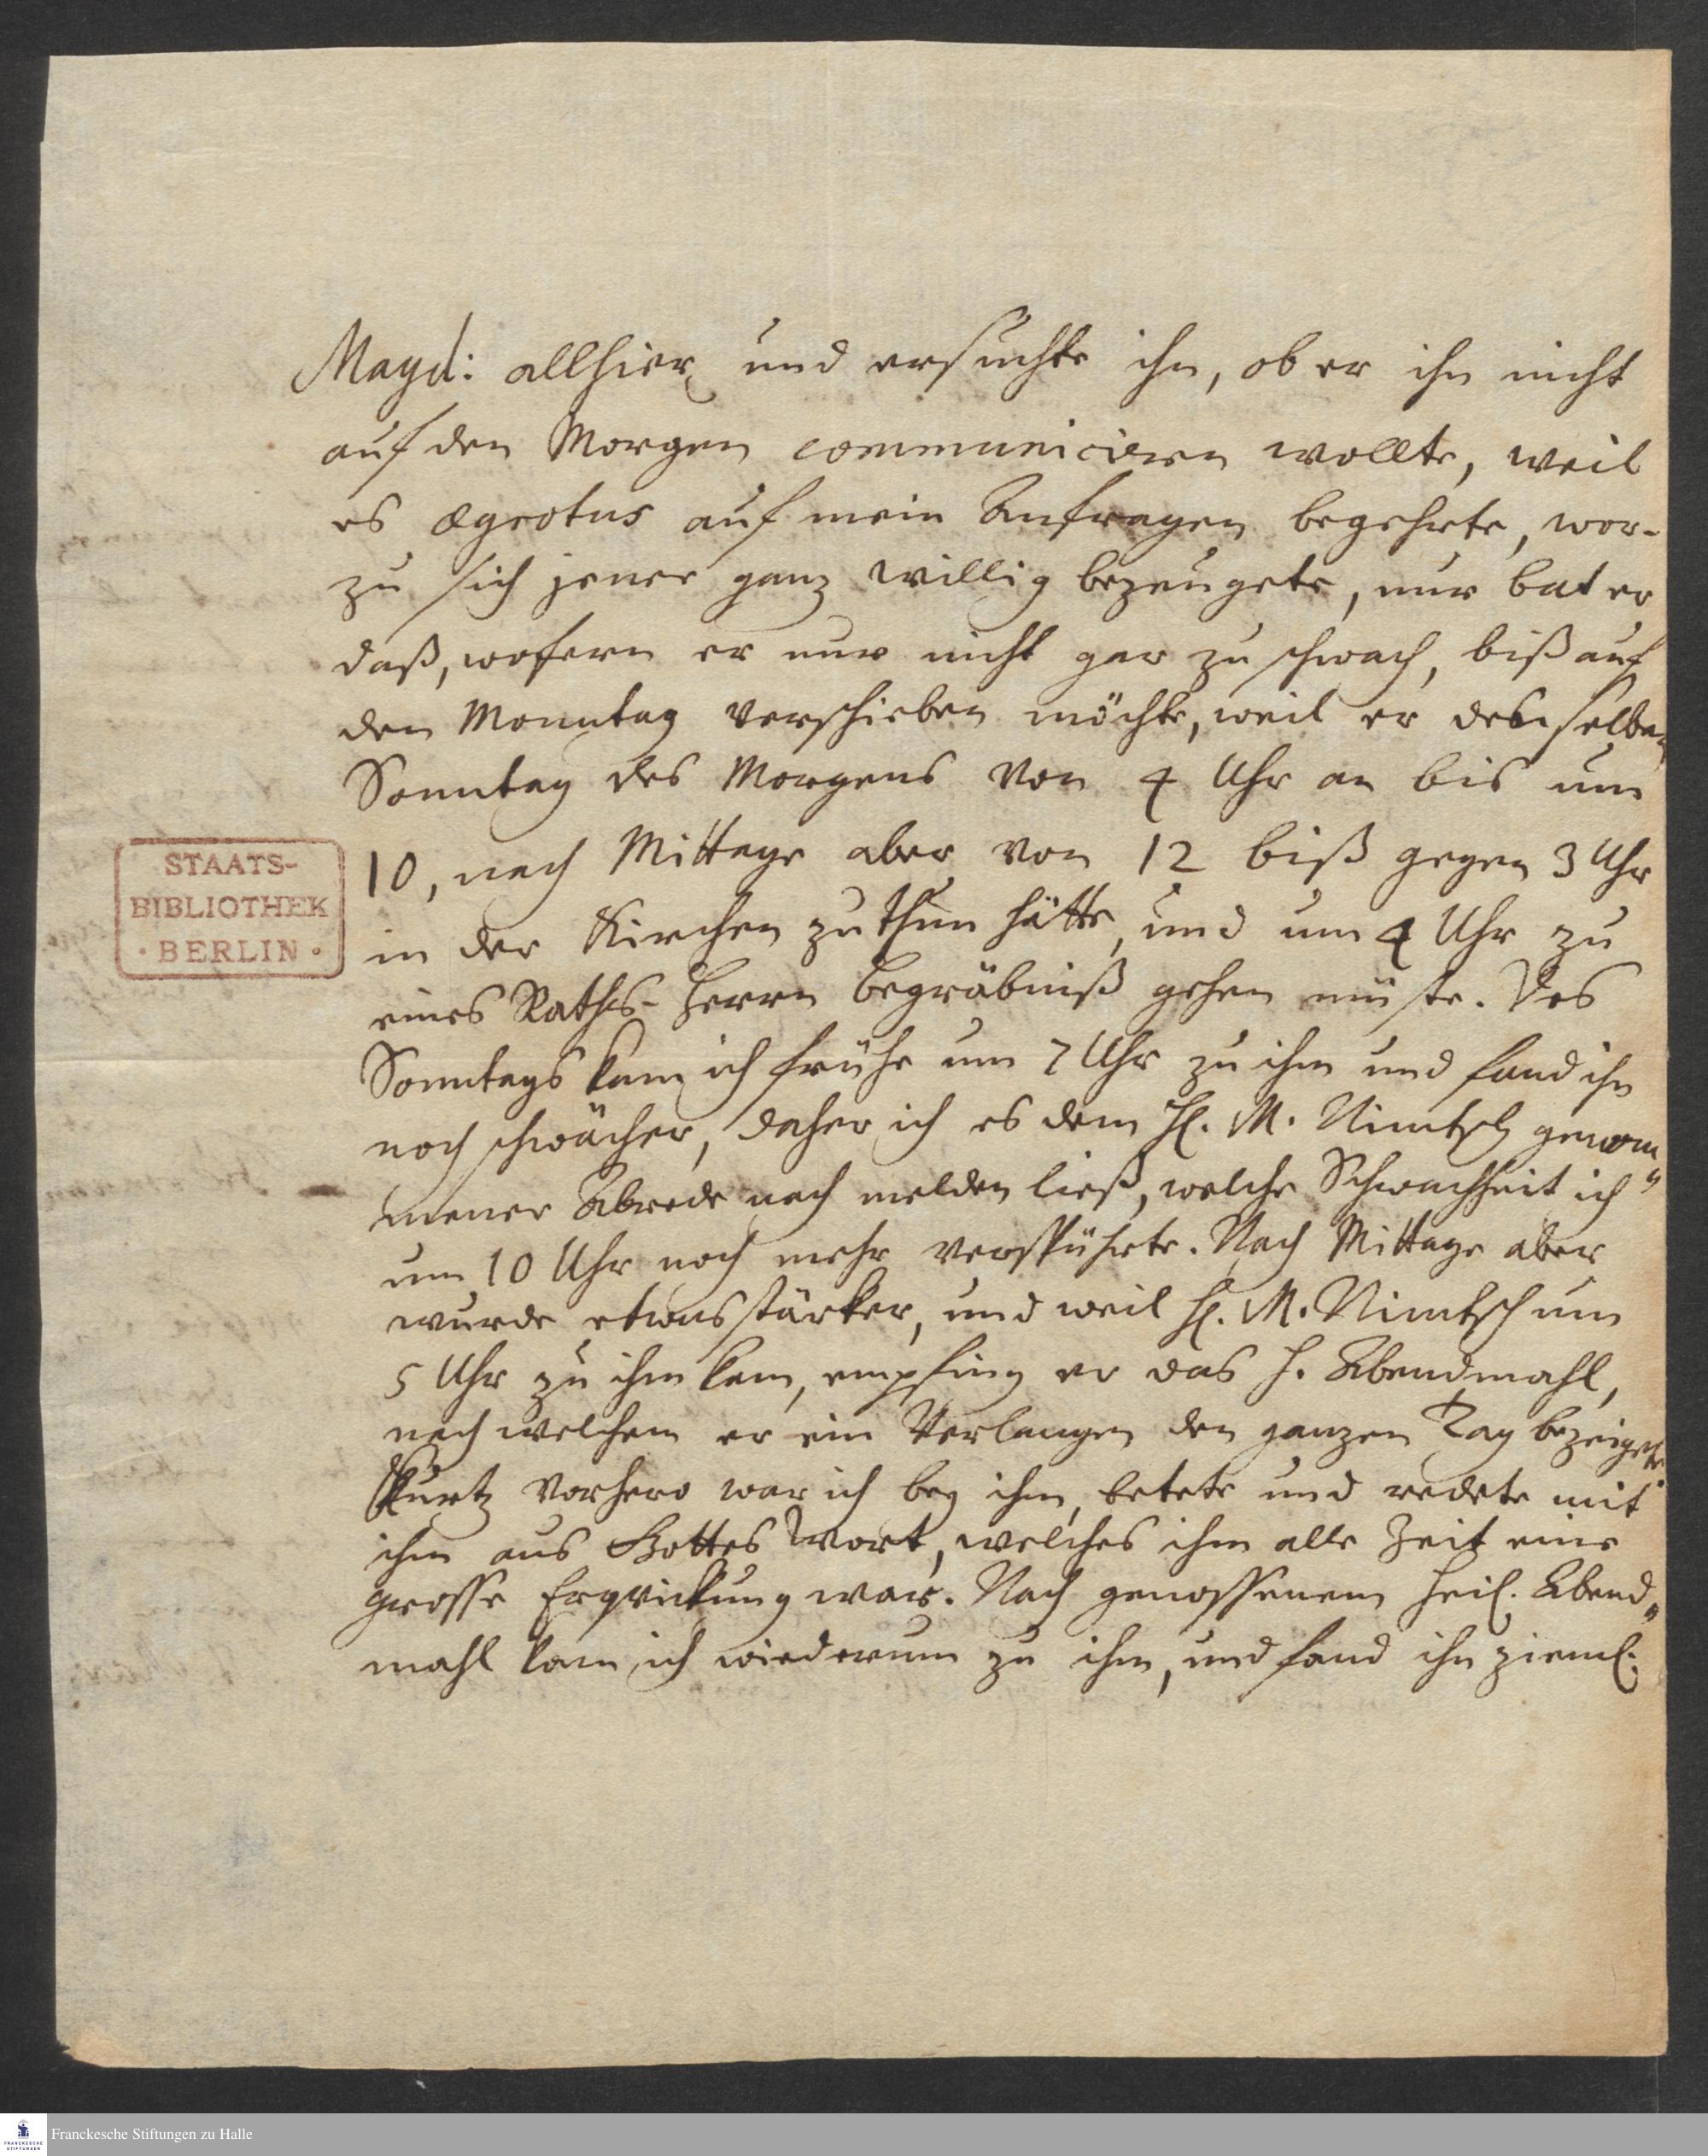 Magd: allhier und ersuchte ihn, ob er ihn nicht
auf den Morgen communiciren wollte, weil
es ægrotus auf mein Anfragen begehrte, wor-
zu sich jener ganz willig bezeugete, nur bat er
daß, wofern er nur nicht gar zu schwach, biß auf
den Monntag verschieben möchte, weil er desselben
Sonntag des Morgens von 4 Uhr an bis um
10, nach Mittage aber von 12 biß gegen 3 Uhr
in der Kirchen zu thun hätte, und um 4 Uhr zu
eines Raths-Herrn Begräbniß gehen müste. Des
Sonntags kam ich frühe um 7 Uhr zu ihm und fand ihn
noch schwächer, daher ich es dem H. M. Nimtsch genom„
mener Abrede nach melden ließ, welche Schwachheit ich
um 10 Uhr noch mehr verspührete. Nach Mittage aber
wurde etwas stärker, und weil H. M. Nimtsch um
5 Uhr zu ihm kam, empfing er das H. Abendmahl,
nach welchem er ein Verlangen den ganzen Tag bezeigete.
Kurtz vorhero war ich bey ihm, betete und redete mit
ihm aus Gottes Wort, welches ihm alle Zeit eine
grosse Erqvickung war. Nach genossenem heil. Abend„
mahl kam ich wiederum zu ihm, und fand ihn zieml.
STAATS-
BIBLIOTHEK
· BERLIN ·
Franckesche Stiftungen zu Halle
FRANCKESCHE
STIFTUNGEN